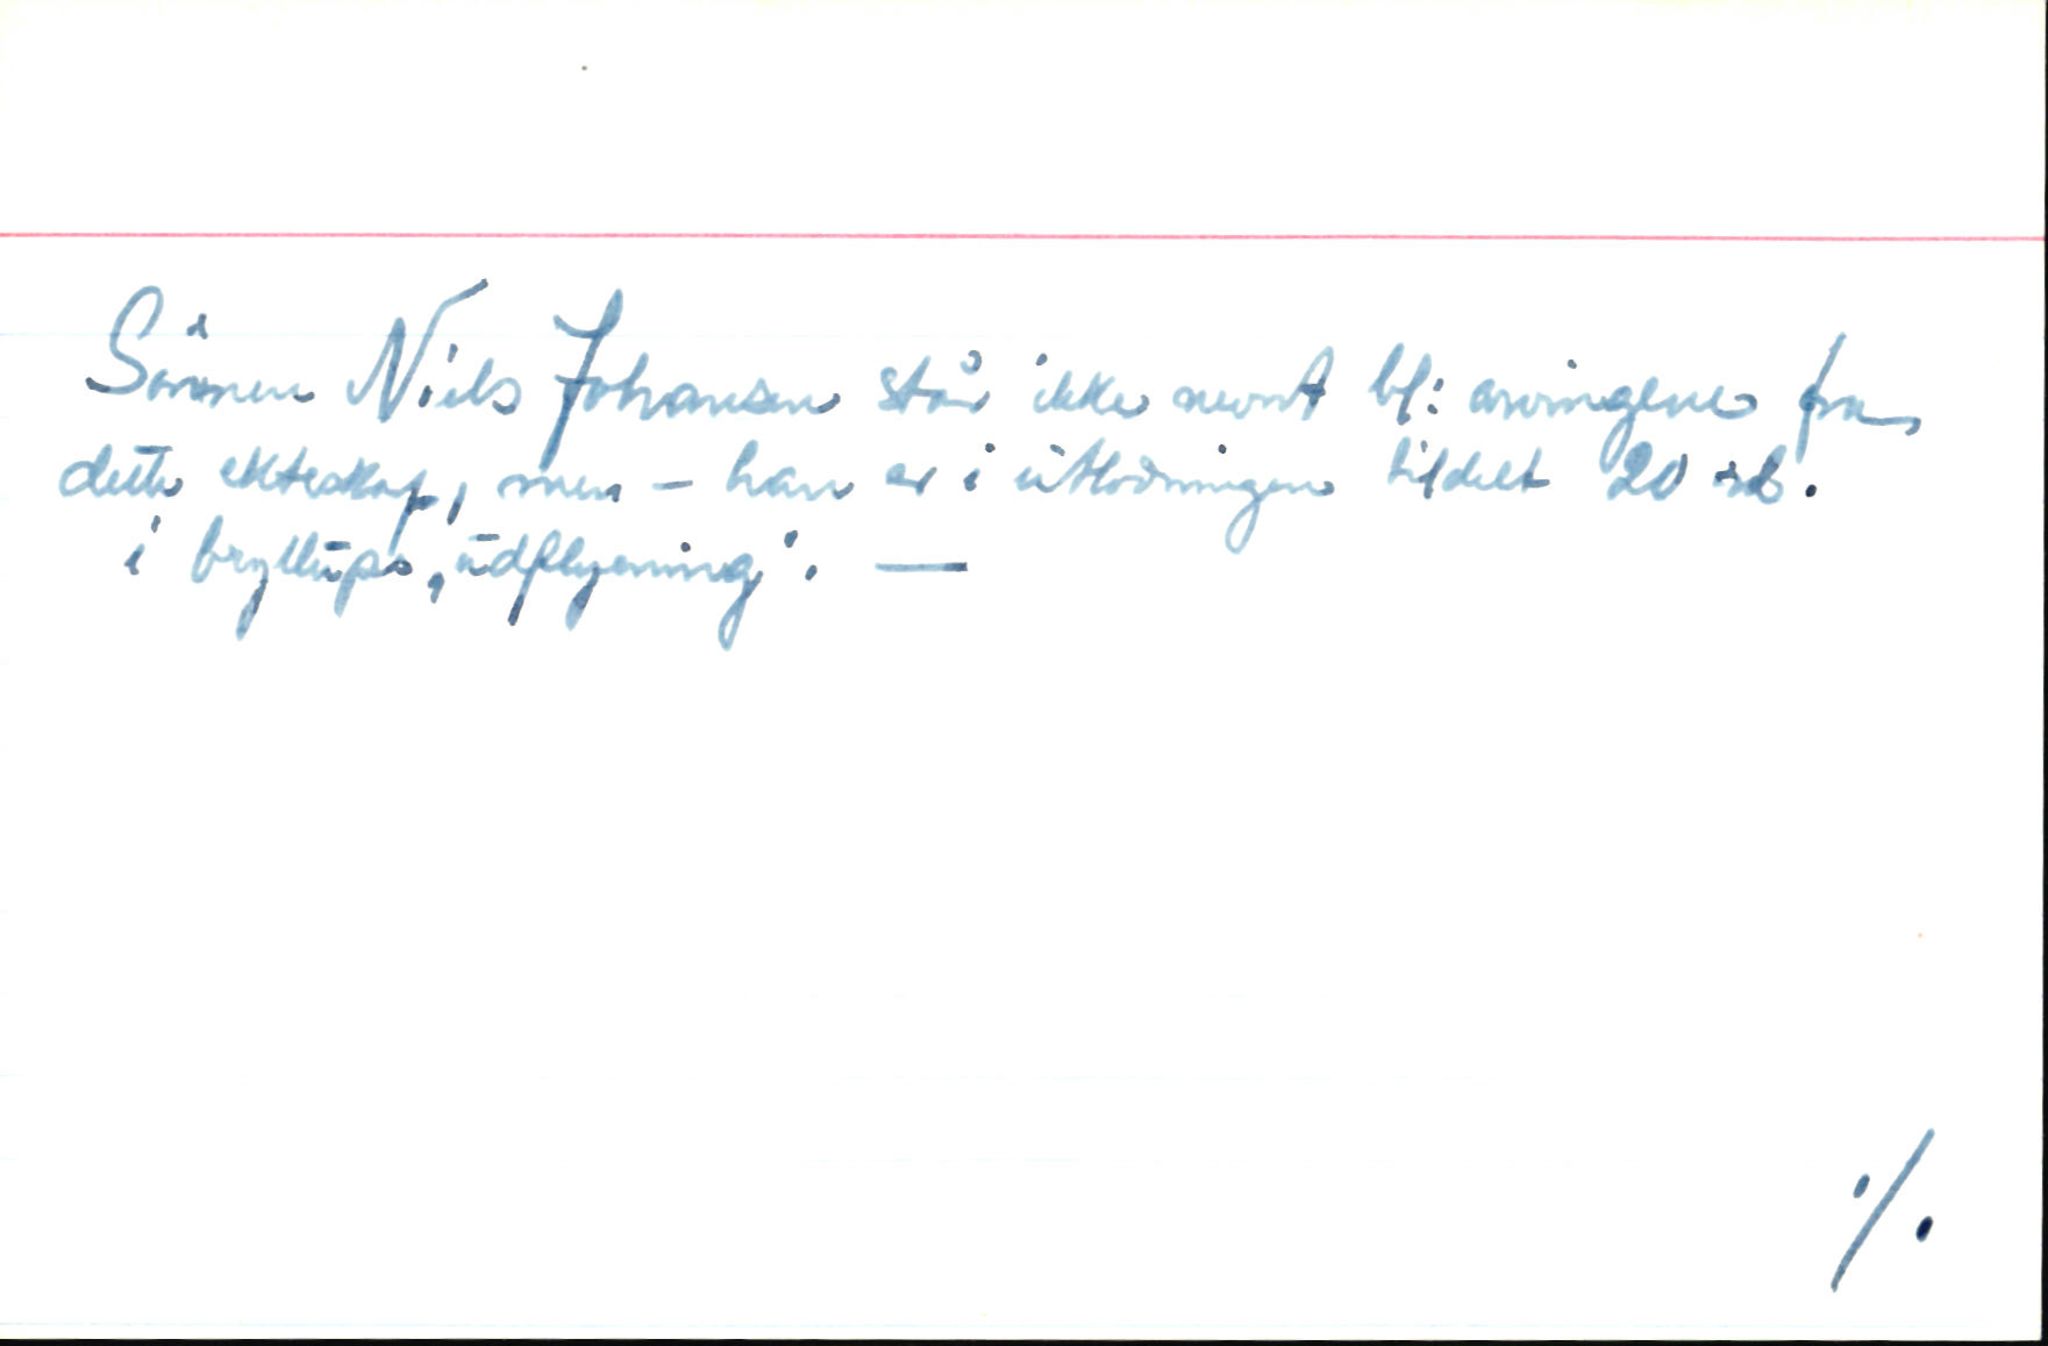 Sönnen Niels Johansen står ikke nevnt bl: arvingene fra
dette ekteskap, men - han er i utlodningen tildelt 20 rd.
i bryllups „udflyening". —
./.